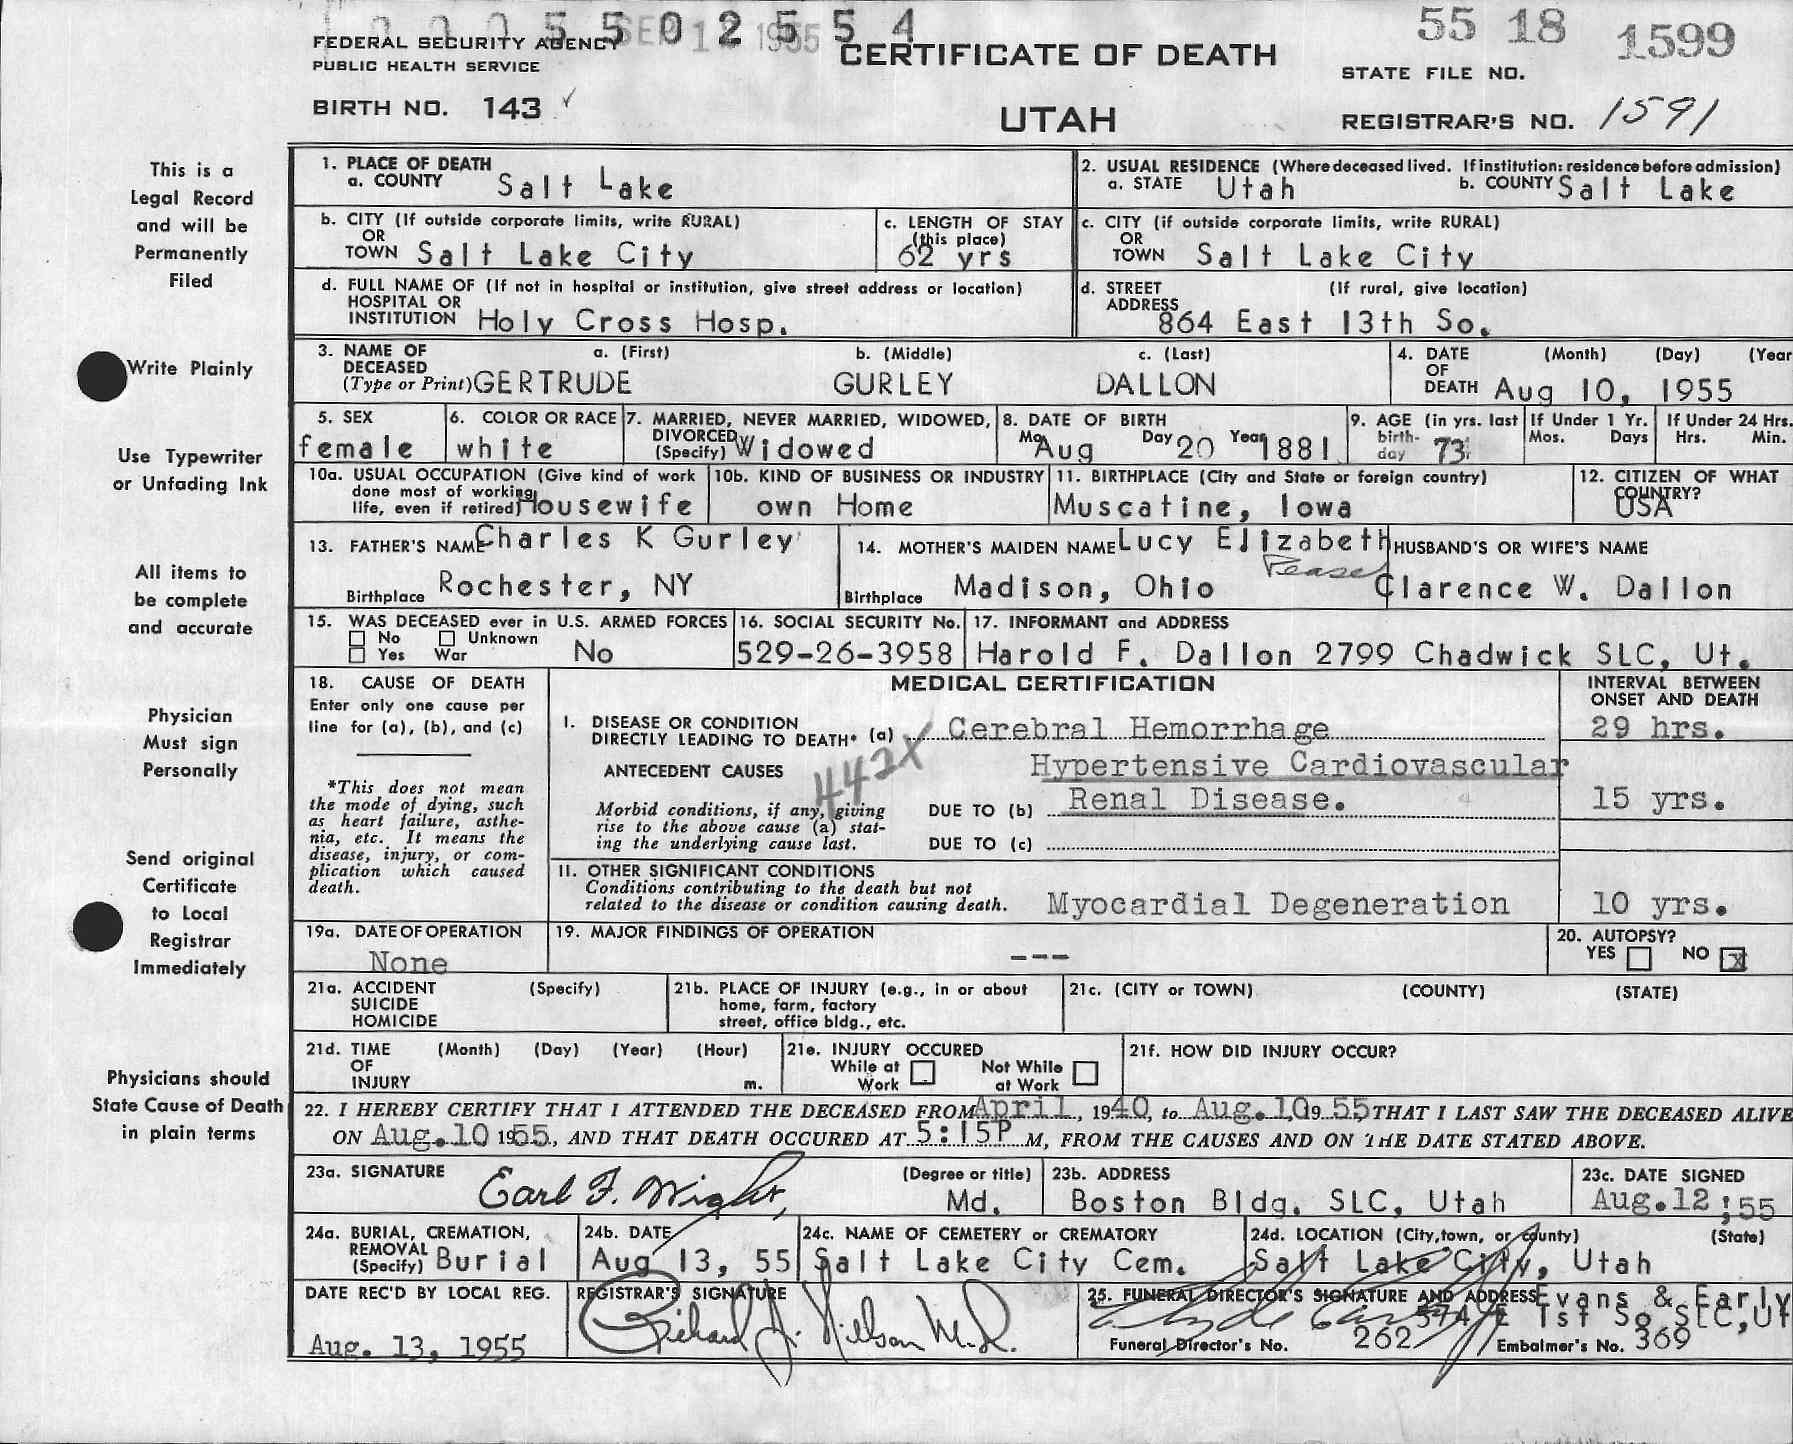 1005502554
SEP 12 1955
55 18 1599
FEDERAL SECURITY AGENCY
PUBLIC HEALTH SERVICE
CERTIFICATE OF DEATH
STATE FILE NO.
BIRTH NO. 143 ✓
UTAH
REGISTRAR'S NO. 1591
This is a
Legal Record
and will be
Permanently
Filed
Write Plainly
Use Typewriter
or Unfading Ink
All items to
be complete
and accurate
Physician
Must sign
Personally
Send original
Certificate
to Local
Registrar
Immediately
Physicians should
State Cause of Death
in plain terms
1. PLACE OF DEATH
a. COUNTY Salt Lake
2. USUAL RESIDENCE (Where deceased lived. If institution: residence before admission)
a. STATE Utah b. COUNTY Salt Lake
b. CITY (If outside corporate limits, write RURAL)
OR
TOWN Salt Lake City
c. LENGTH OF STAY
(this place)
62 yrs
c. CITY (if outside corporate limits, write RURAL)
OR
TOWN Salt Lake City
d. FULL NAME OF (If not in hospital or institution, give street address or location)
HOSPITAL OR
INSTITUTION Holy Cross Hosp.
d. STREET (If rural, give location)
ADDRESS
864 East 13th So.
3. NAME OF a. (First) b. (Middle) c. (Last)
DECEASED
(Type or Print) GERTRUDE GURLEY DALLON
4. DATE (Month) (Day) (Year
OF
DEATH Aug 10, 1955
5. SEX
female
6. COLOR OR RACE
white
7. MARRIED, NEVER MARRIED, WIDOWED,
DIVORCED
(Specify) Widowed
8. DATE OF BIRTH
Mo Aug Day 20 Year 1881
9. AGE (in yrs. last
birth-
day 73
If Under 1 Yr.
Mos. Days
If Under 24 Hrs.
Hrs. Min.
10a. USUAL OCCUPATION (Give kind of work
done most of working
life, even if retired) Housewife
10b. KIND OF BUSINESS OR INDUSTRY
own Home
11. BIRTHPLACE (City and State or foreign country)
Muscatine, Iowa
12. CITIZEN OF WHAT
COUNTRY?
USA
13. FATHER'S NAME Charles K Gurley
Birthplace Rochester, NY
14. MOTHER'S MAIDEN NAME Lucy Elizabeth
Pease
Birthplace Madison, Ohio
HUSBAND'S OR WIFE'S NAME
Clarence W. Dallon
15. WAS DECEASED ever in U.S. ARMED FORCES
No Unknown
Yes War No
16. SOCIAL SECURITY No.
529-26-3958
17. INFORMANT and ADDRESS
Harold F. Dallon 2799 Chadwick SLC, Ut.
18. CAUSE OF DEATH
Enter only one cause per
line for (a), (b), and (c)
*This does not mean
the mode of dying, such
as heart failure, asthe-
nia, etc. It means the
disease, injury, or com-
plication which caused
death.
MEDICAL CERTIFICATION
INTERVAL BETWEEN
ONSET AND DEATH
I. DISEASE OR CONDITION
DIRECTLY LEADING TO DEATH* (a) Cerebral Hemorrhage 29 hrs.
442X
ANTECEDENT CAUSES Hypertensive Cardiovascular
Morbid conditions, if any, giving
rise to the above cause (a) stat-
ing the underlying cause last.
DUE TO (b) Renal Disease. 15 yrs.
DUE TO (c)
II. OTHER SIGNIFICANT CONDITIONS
Conditions contributing to the death but not
related to the disease or condition causing death. Myocardial Degeneration 10 yrs.
19a. DATE OF OPERATION
None
19. MAJOR FINDINGS OF OPERATION
---
20. AUTOPSY?
YES NO X
21a. ACCIDENT (Specify)
SUICIDE
HOMICIDE
21b. PLACE OF INJURY (e.g., in or about
home, farm, factory
street, office bldg., etc.
21c. (CITY or TOWN) (COUNTY) (STATE)
21d. TIME (Month) (Day) (Year) (Hour)
OF
INJURY m.
21e. INJURY OCCURED
While at Not While
Work at Work
21f. HOW DID INJURY OCCUR?
22. I HEREBY CERTIFY THAT I ATTENDED THE DECEASED FROM April, 1940, to Aug. 10 1955 THAT I LAST SAW THE DECEASED ALIVE
ON Aug. 10 1955, AND THAT DEATH OCCURED AT 5:15P M, FROM THE CAUSES AND ON THE DATE STATED ABOVE.
23a. SIGNATURE (Degree or title)
Earl F. Wight, Md.
23b. ADDRESS
Boston Bldg. SLC, Utah
23c. DATE SIGNED
Aug. 12, 55
24a. BURIAL, CREMATION,
REMOVAL
(Specify) Burial
24b. DATE
Aug 13, 55
24c. NAME OF CEMETERY or CREMATORY
Salt Lake City Cem.
24d. LOCATION (City, town, or county) (State)
Salt Lake City, Utah
DATE REC'D BY LOCAL REG.
Aug. 13, 1955
REGISTRAR'S SIGNATURE
Richard J. Nillson M.D.
25. FUNERAL DIRECTOR'S SIGNATURE AND ADDRESS Evans & Early
574 E 1st So SLC, Ut
Funeral Director's No. 262 Embalmer's No. 369